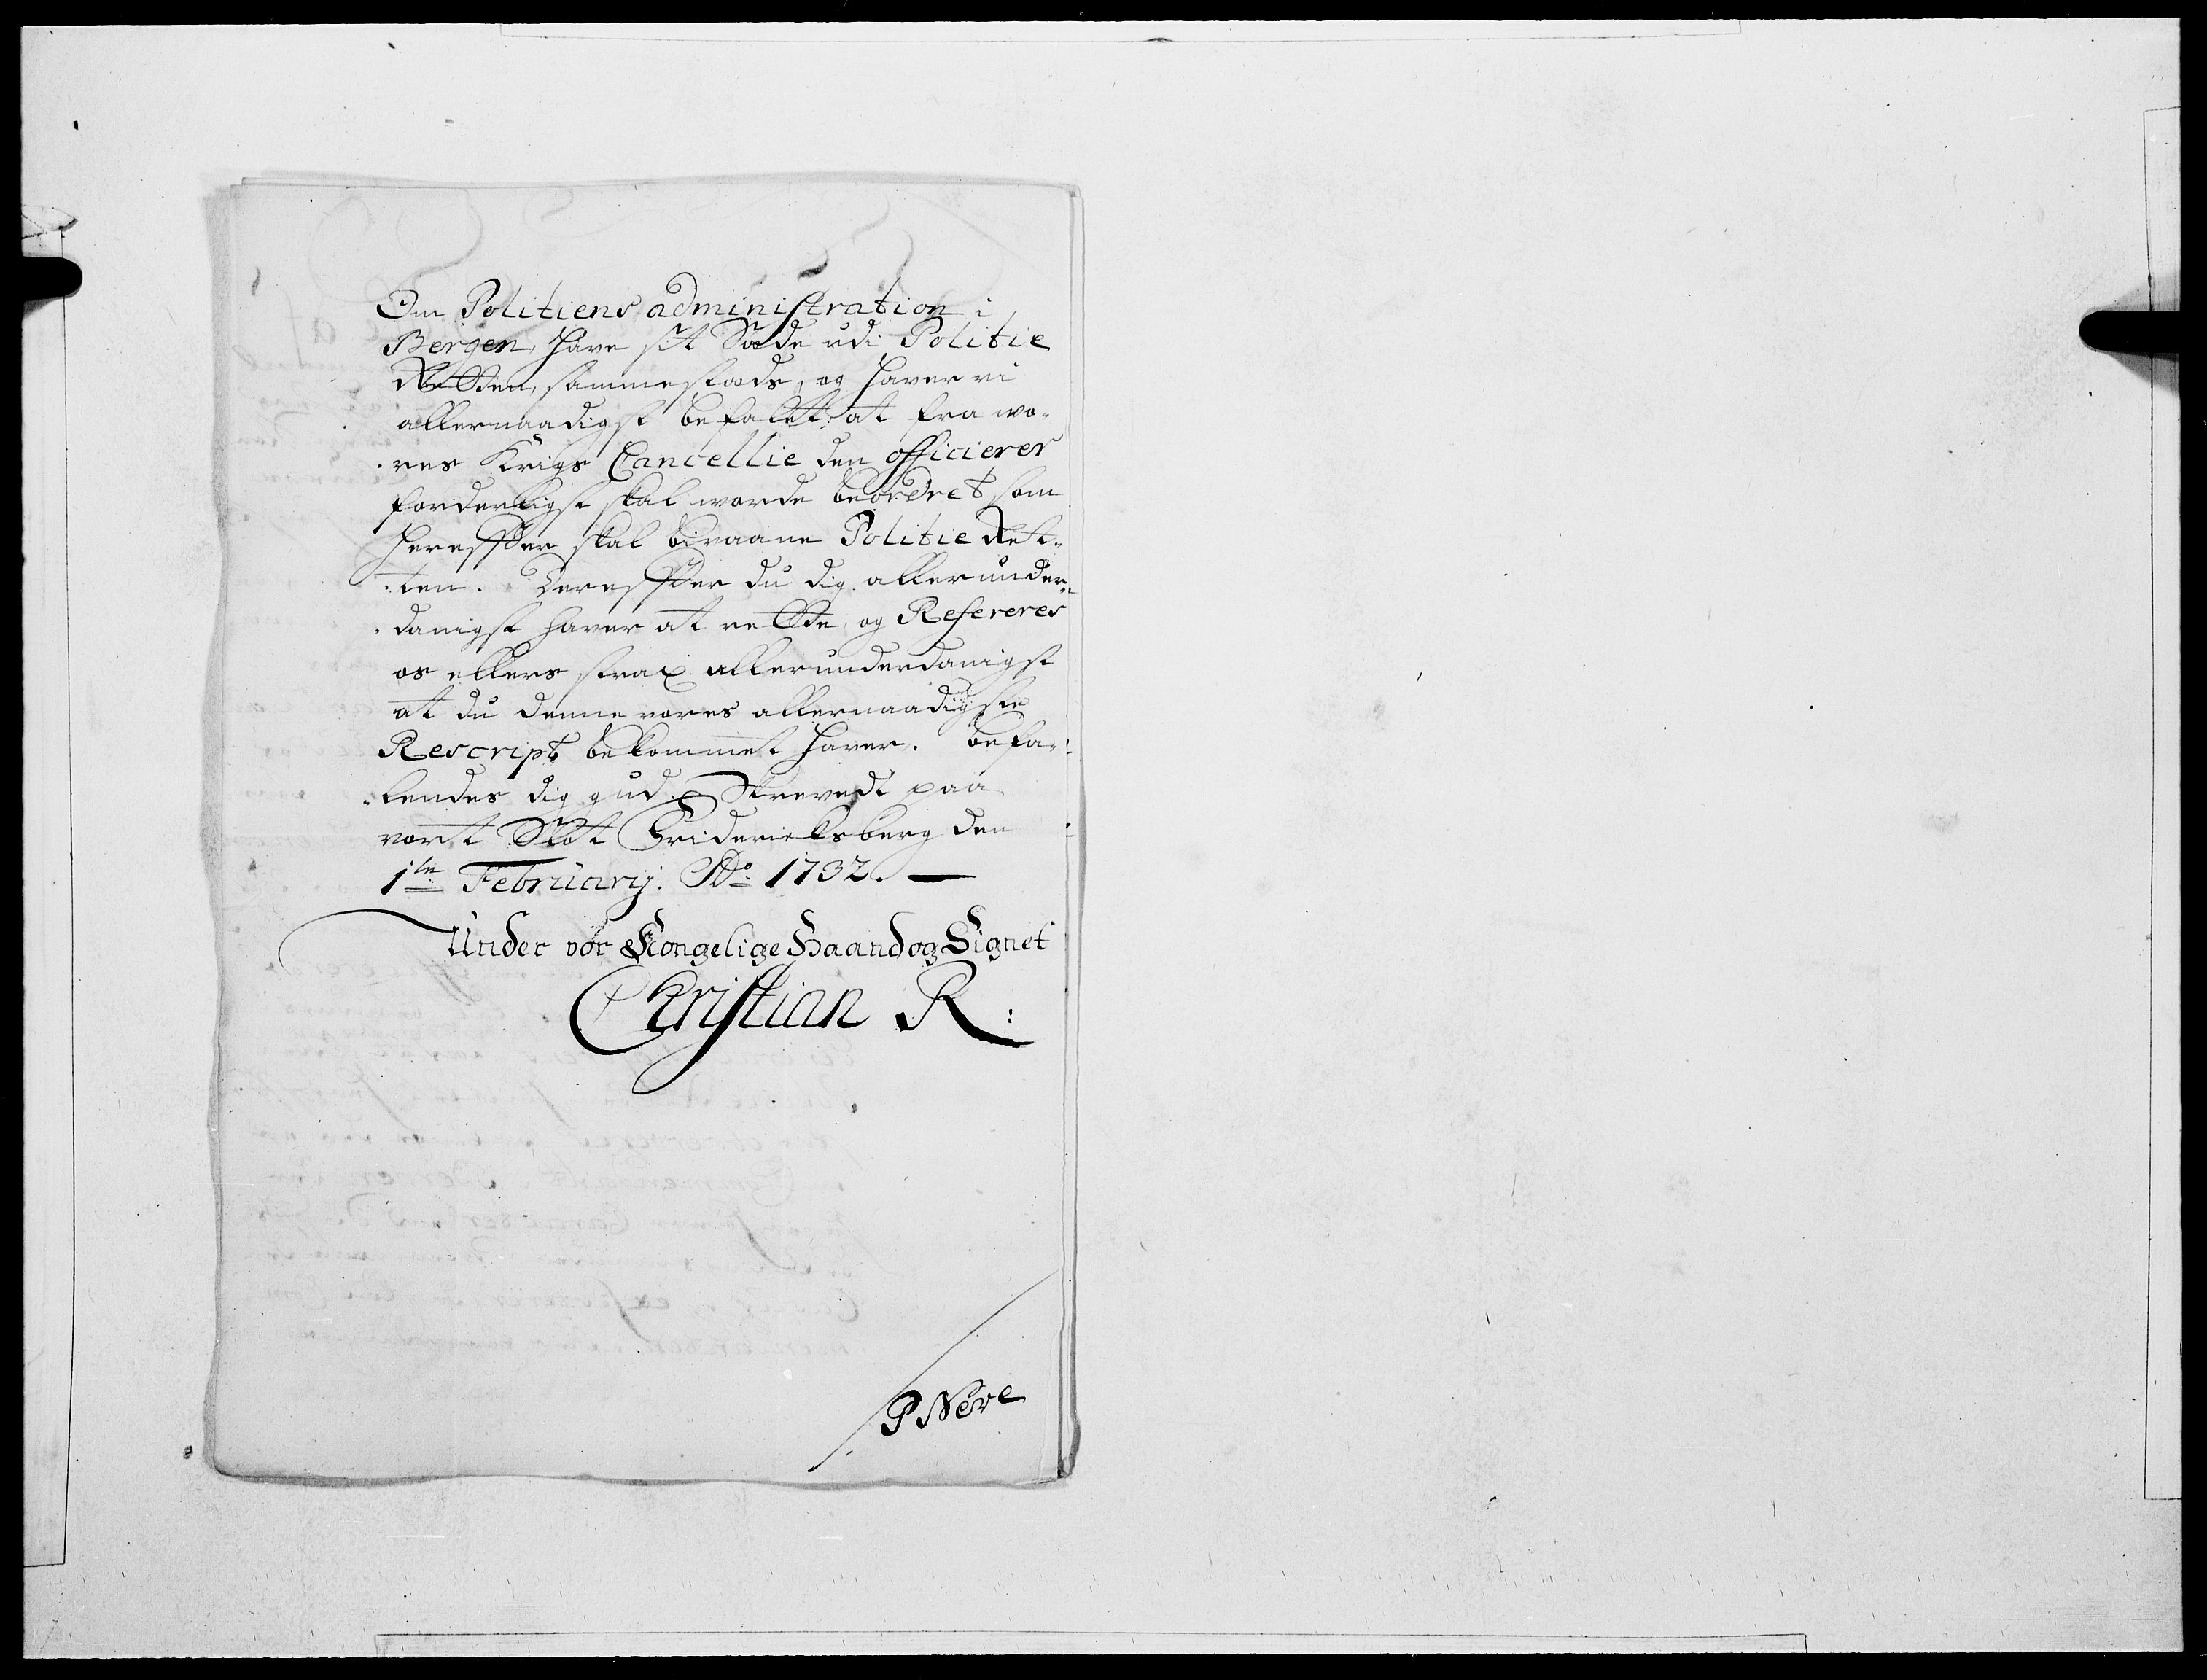 Om Politiens administration i
Bergen, have sit Sæde udi Politie
Retten, sammestæds, og haver vi
allernaadigst befalet, at fra wo-
res Krigs Cancellie den officierer
forderligst skal worde beordret som
hereffter skal bivaane Politie Ret-
ten. Dereffter du dig allerunder-
danigst haver at rette, og Refereres
os ellers strax allerunderdanigst
at du denne vores allernaadigste
Rescript bekommet haver. Befa-
lendes dig gud. Skrevedt paa
vort Slot Friderichsberg den
1te February. Ao: 1732. —
Under vor Kongelige Haand og Signet
Christian R:
P Neve